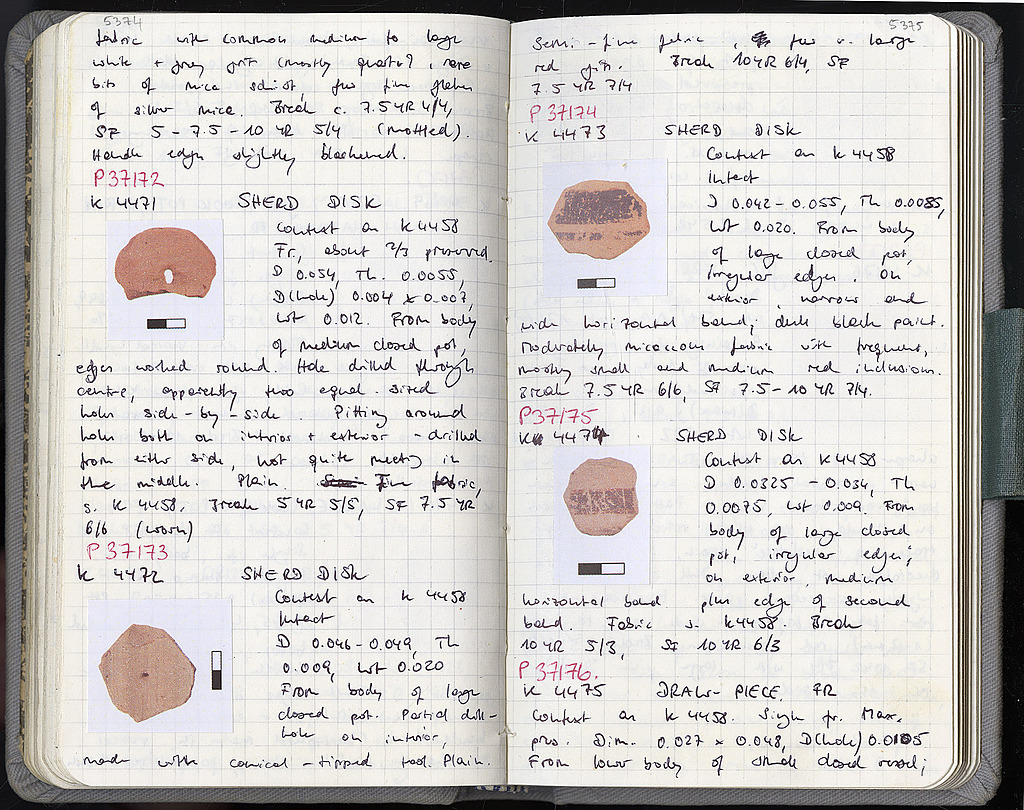 5374
fabric with common medium to large
white + grey grits (mostly quartz?, rare
bits of mica schist, few fine flakes
of silver mica. Break c. 7.5 YR 4/4,
SF 5 - 7.5 - 10 YR 5/4 (mottled).
Handle edge slightly blackened.
P 37172
K 4471 SHERD DISK
Context as K 4458
Fr., about 2/3 preserved.
D 0.054, Th. 0.0055,
D(hole) 0.004 x 0.007,
Wt 0.012. From body
of medium closed pot,
edges worked round. Hole drilled through
centre, apparently two equal-sized
holes side-by-side. Pitting around
holes both on interior + exterior - drilled
from either side, not quite meeting in
the middle. Plain. Fine fabric,
s. K 4458. Break 5 YR 5/5, SF 7.5 YR
6/6 (worn)
P 37173
K 4472 SHERD DISK
Context as K 4458
Intact
D 0.046-0.049, Th
0.009, Wt 0.020
From body of large
closed pot. Partial drill-
hole on interior,
made with conical-tipped tool. Plain.
5375
Semi-fine fabric, few v. large
red grits. Break 10 YR 6/4, SF
7.5 YR 7/4
P 37174
K 4473 SHERD DISK
Context as K 4458
Intact
D 0.042-0.055, Th 0.0085,
Wt 0.020. From body
of large closed pot,
irregular edges. On
exterior, narrow and
wide horizontal band; dull black paint.
Moderately micaceous fabric with frequent,
mostly small and medium red inclusions.
Break 7.5 YR 6/6, SF 7.5-10 YR 7/4.
P 37175
K 4474 SHERD DISK
Context as K 4458
D 0.0325-0.034, Th
0.0075, Wt 0.009. From
body of large closed
pot, irregular edges;
on exterior, medium
horizontal band plus edge of second
band. Fabric s. K 4458. Break
10 YR 5/3, SF 10 YR 6/3
P 37176.
K 4475 DRAW-PIECE, FR
Context as K 4458. Single fr. Max.
pres. Dim. 0.027 x 0.048, D(hole) 0.0105
From lower body of small closed vessel;